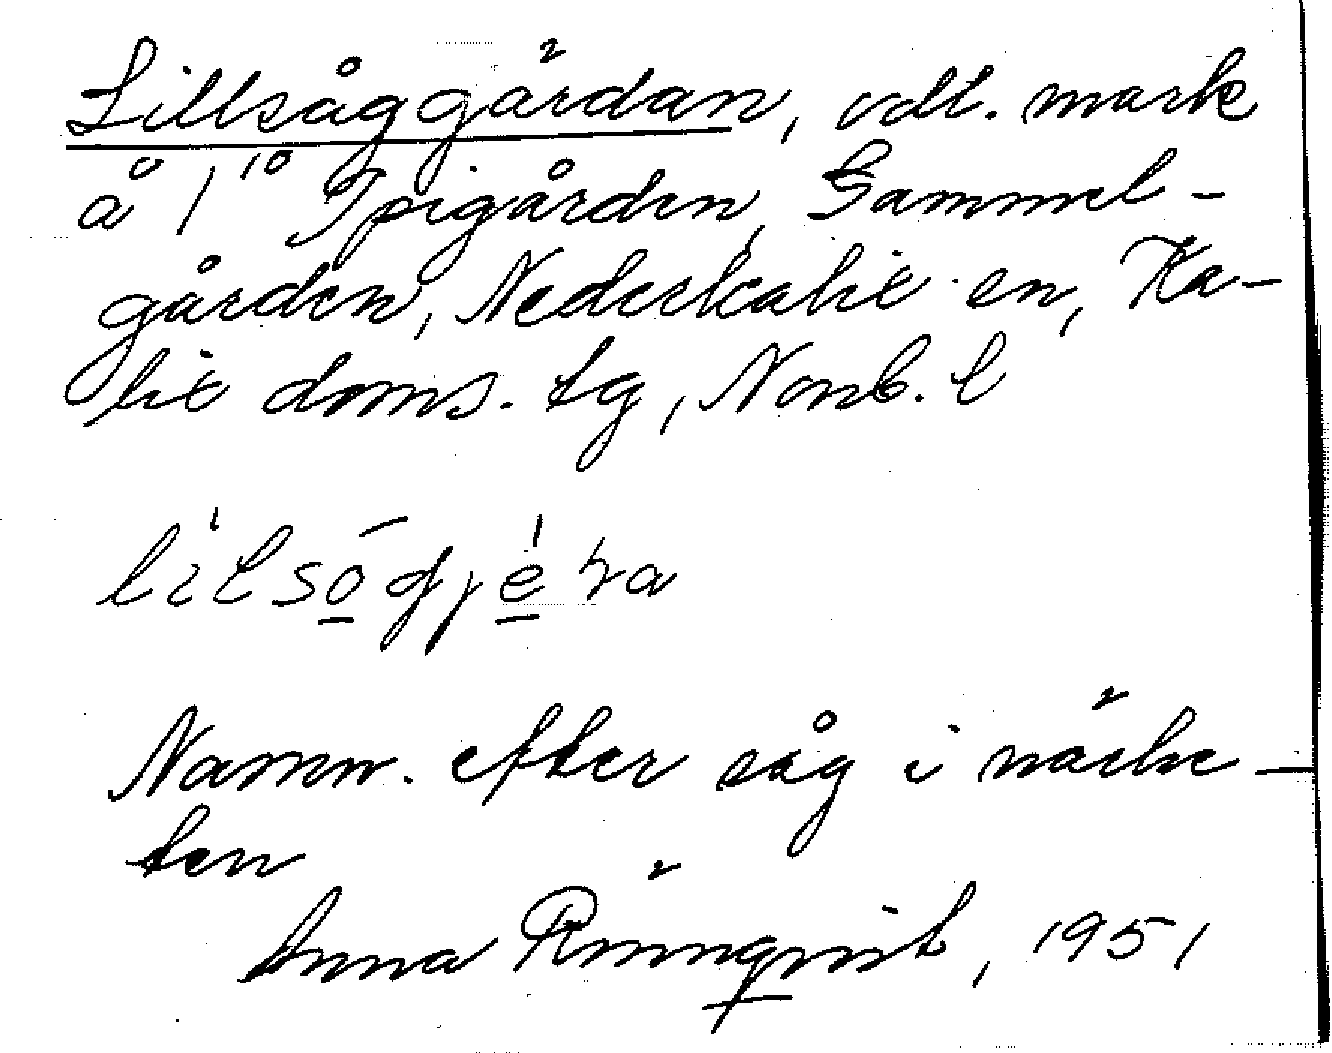 Lillsåggärdan, odl. mark
å 1¹⁰ Spigården, Gammel-
gården, Nederkalix sn, Ka-
lix doms. tg, Norrb. l
lìlsógjèra
Namn. efter såg i närhe-
ten
Anna Rönnqvist, 1951